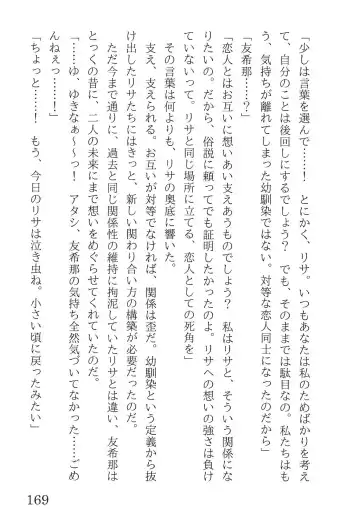 「少しは言葉を選んで……！　とにかく、リサ。いつもあなたは私のためばかりを考え
て、自分のことは後回しにするでしょう？　でも、そのままでは駄目なの。私たちはも
う、気持ちが離れてしまった幼馴染ではない。対等な恋人同士になったのだから」
「友希那……？」
「恋人とはお互いに想いあい支えあうものでしょう？　私はリサと、そういう関係にな
りたいの。だから、俗説に頼ってでも証明したかったのよ。リサへの想いの強さは負け
ていないって。リサと同じ場所に立てる、恋人としての死角を」
その言葉は何よりも、リサの奥底に響いた。
支え、支えられる。お互いが対等でなければ、関係は歪だ。幼馴染という定義から抜
け出したリサたちにはきっと、新しい関わり合い方の構築が必要だったのだ。
ただ今まで通りに、過去と同じ関係性の維持に拘泥していたリサとは違い、友希那は
とっくの昔に、二人の未来にまで想いをめぐらせてくれていたのだ。
「……ゆ、ゆきなぁ〜〜っ！　アタシ、友希那の気持ち全然気づいてなかった……ごめ
んねぇっ……！」
「ちょっと……！　もう、今日のリサは泣き虫ね。小さい頃に戻ったみたい」
169